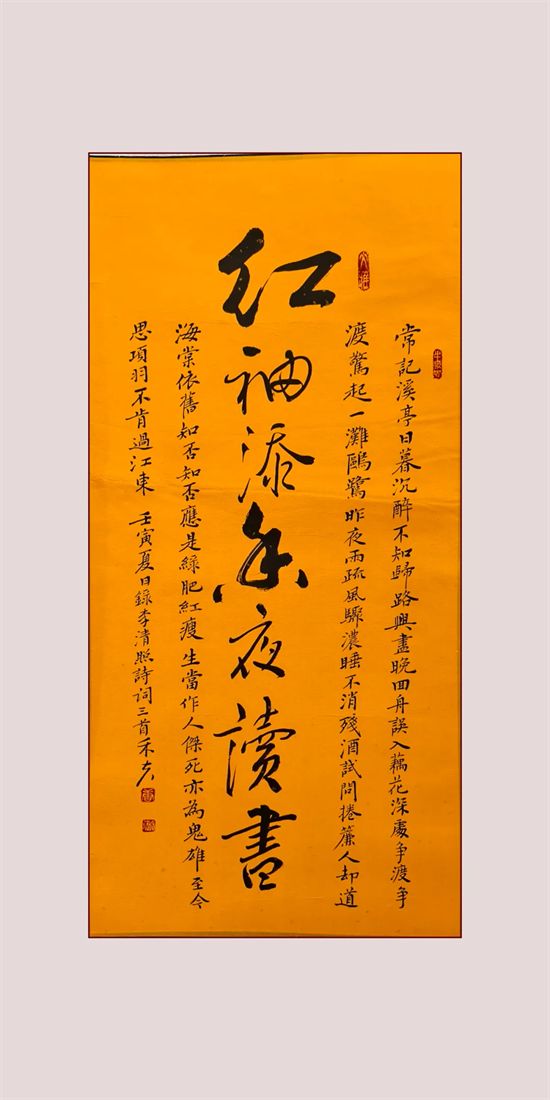 常記溪亭日暮沉醉不知歸路興盡晚回舟誤入藕花深處争渡争
渡驚起一灘鷗鷺昨夜雨疏風驟濃睡不消殘酒試問捲簾人却道
红袖添香夜讀書
海棠依舊知否知否應是綠肥紅瘦 生當作人傑死亦為鬼雄至今
思項羽不肯過江東 壬寅夏日錄李清照詩詞三首禾